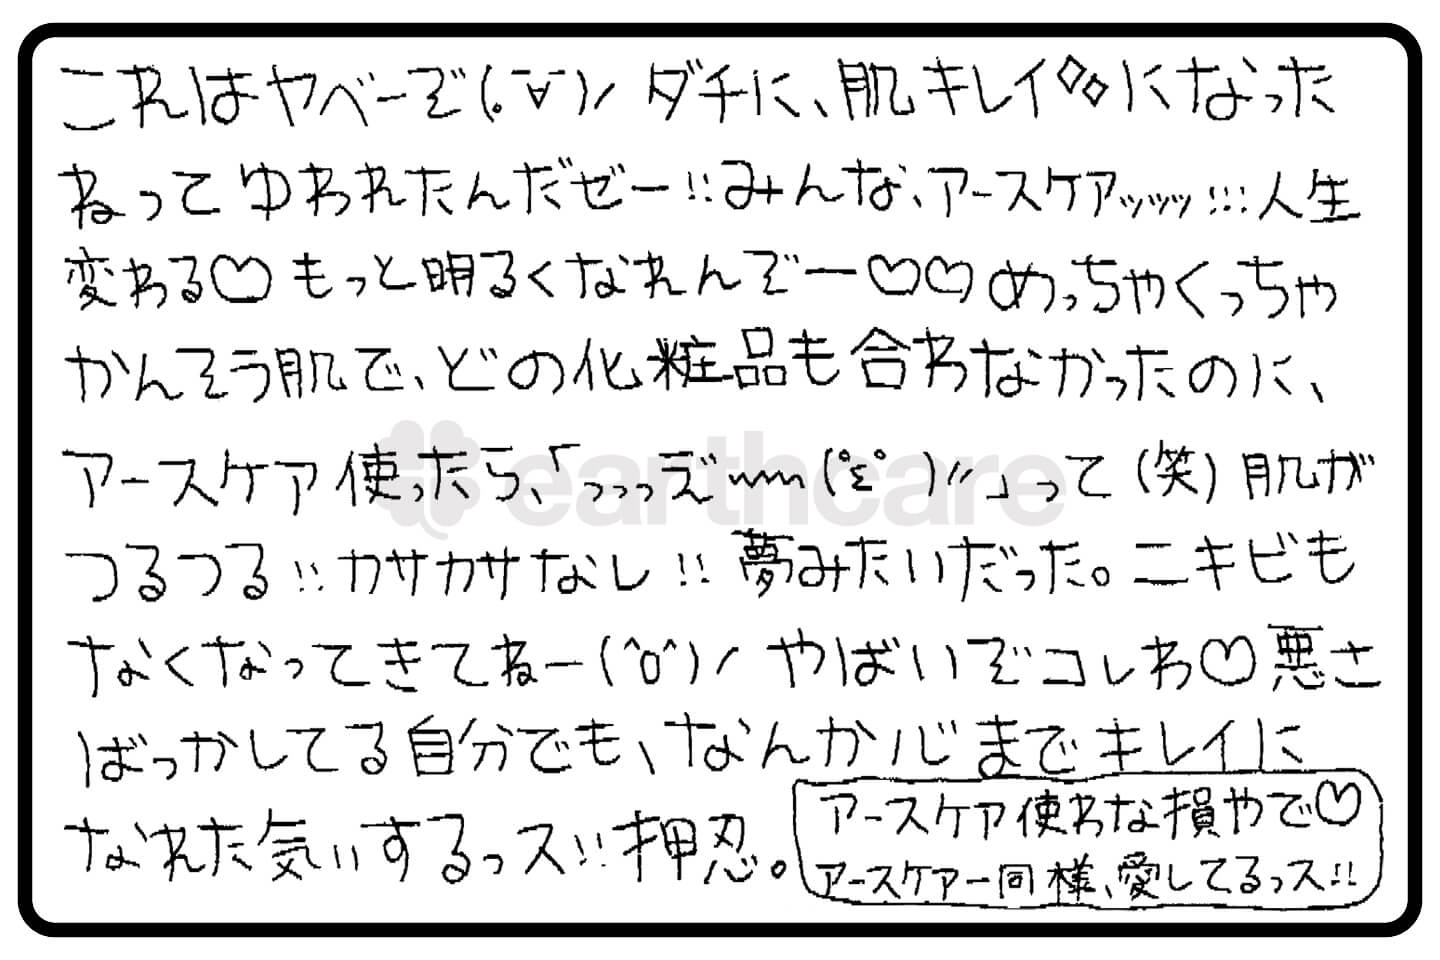 これはヤベーぞ(。¯∀¯)ノ ダチに、肌キレイ◇◇になった
ねってゆわれたんだぜー!!みんな、アースケアッッッッ!!!人生
変わる♡もっと明るくなれんぞー♡♡めっちゃくっちゃ
かんそう肌で、どの化粧品も合わなかったのに、
アースケア使ったら、「っっっえ゛〰〰(゜ε゜)〃」って(笑)肌が
つるつる!!カサカサなし!!夢みたいだった。ニキビも
なくなってきてねー(^O^)ノやばいぞコレわ♡悪さ
ばっかしてる自分でも、なんか心までキレイに
なれた気ぃするっス!!押忍。
アースケア使わな損やで♡
アースケアー同様、愛してるっス!!
earthcare